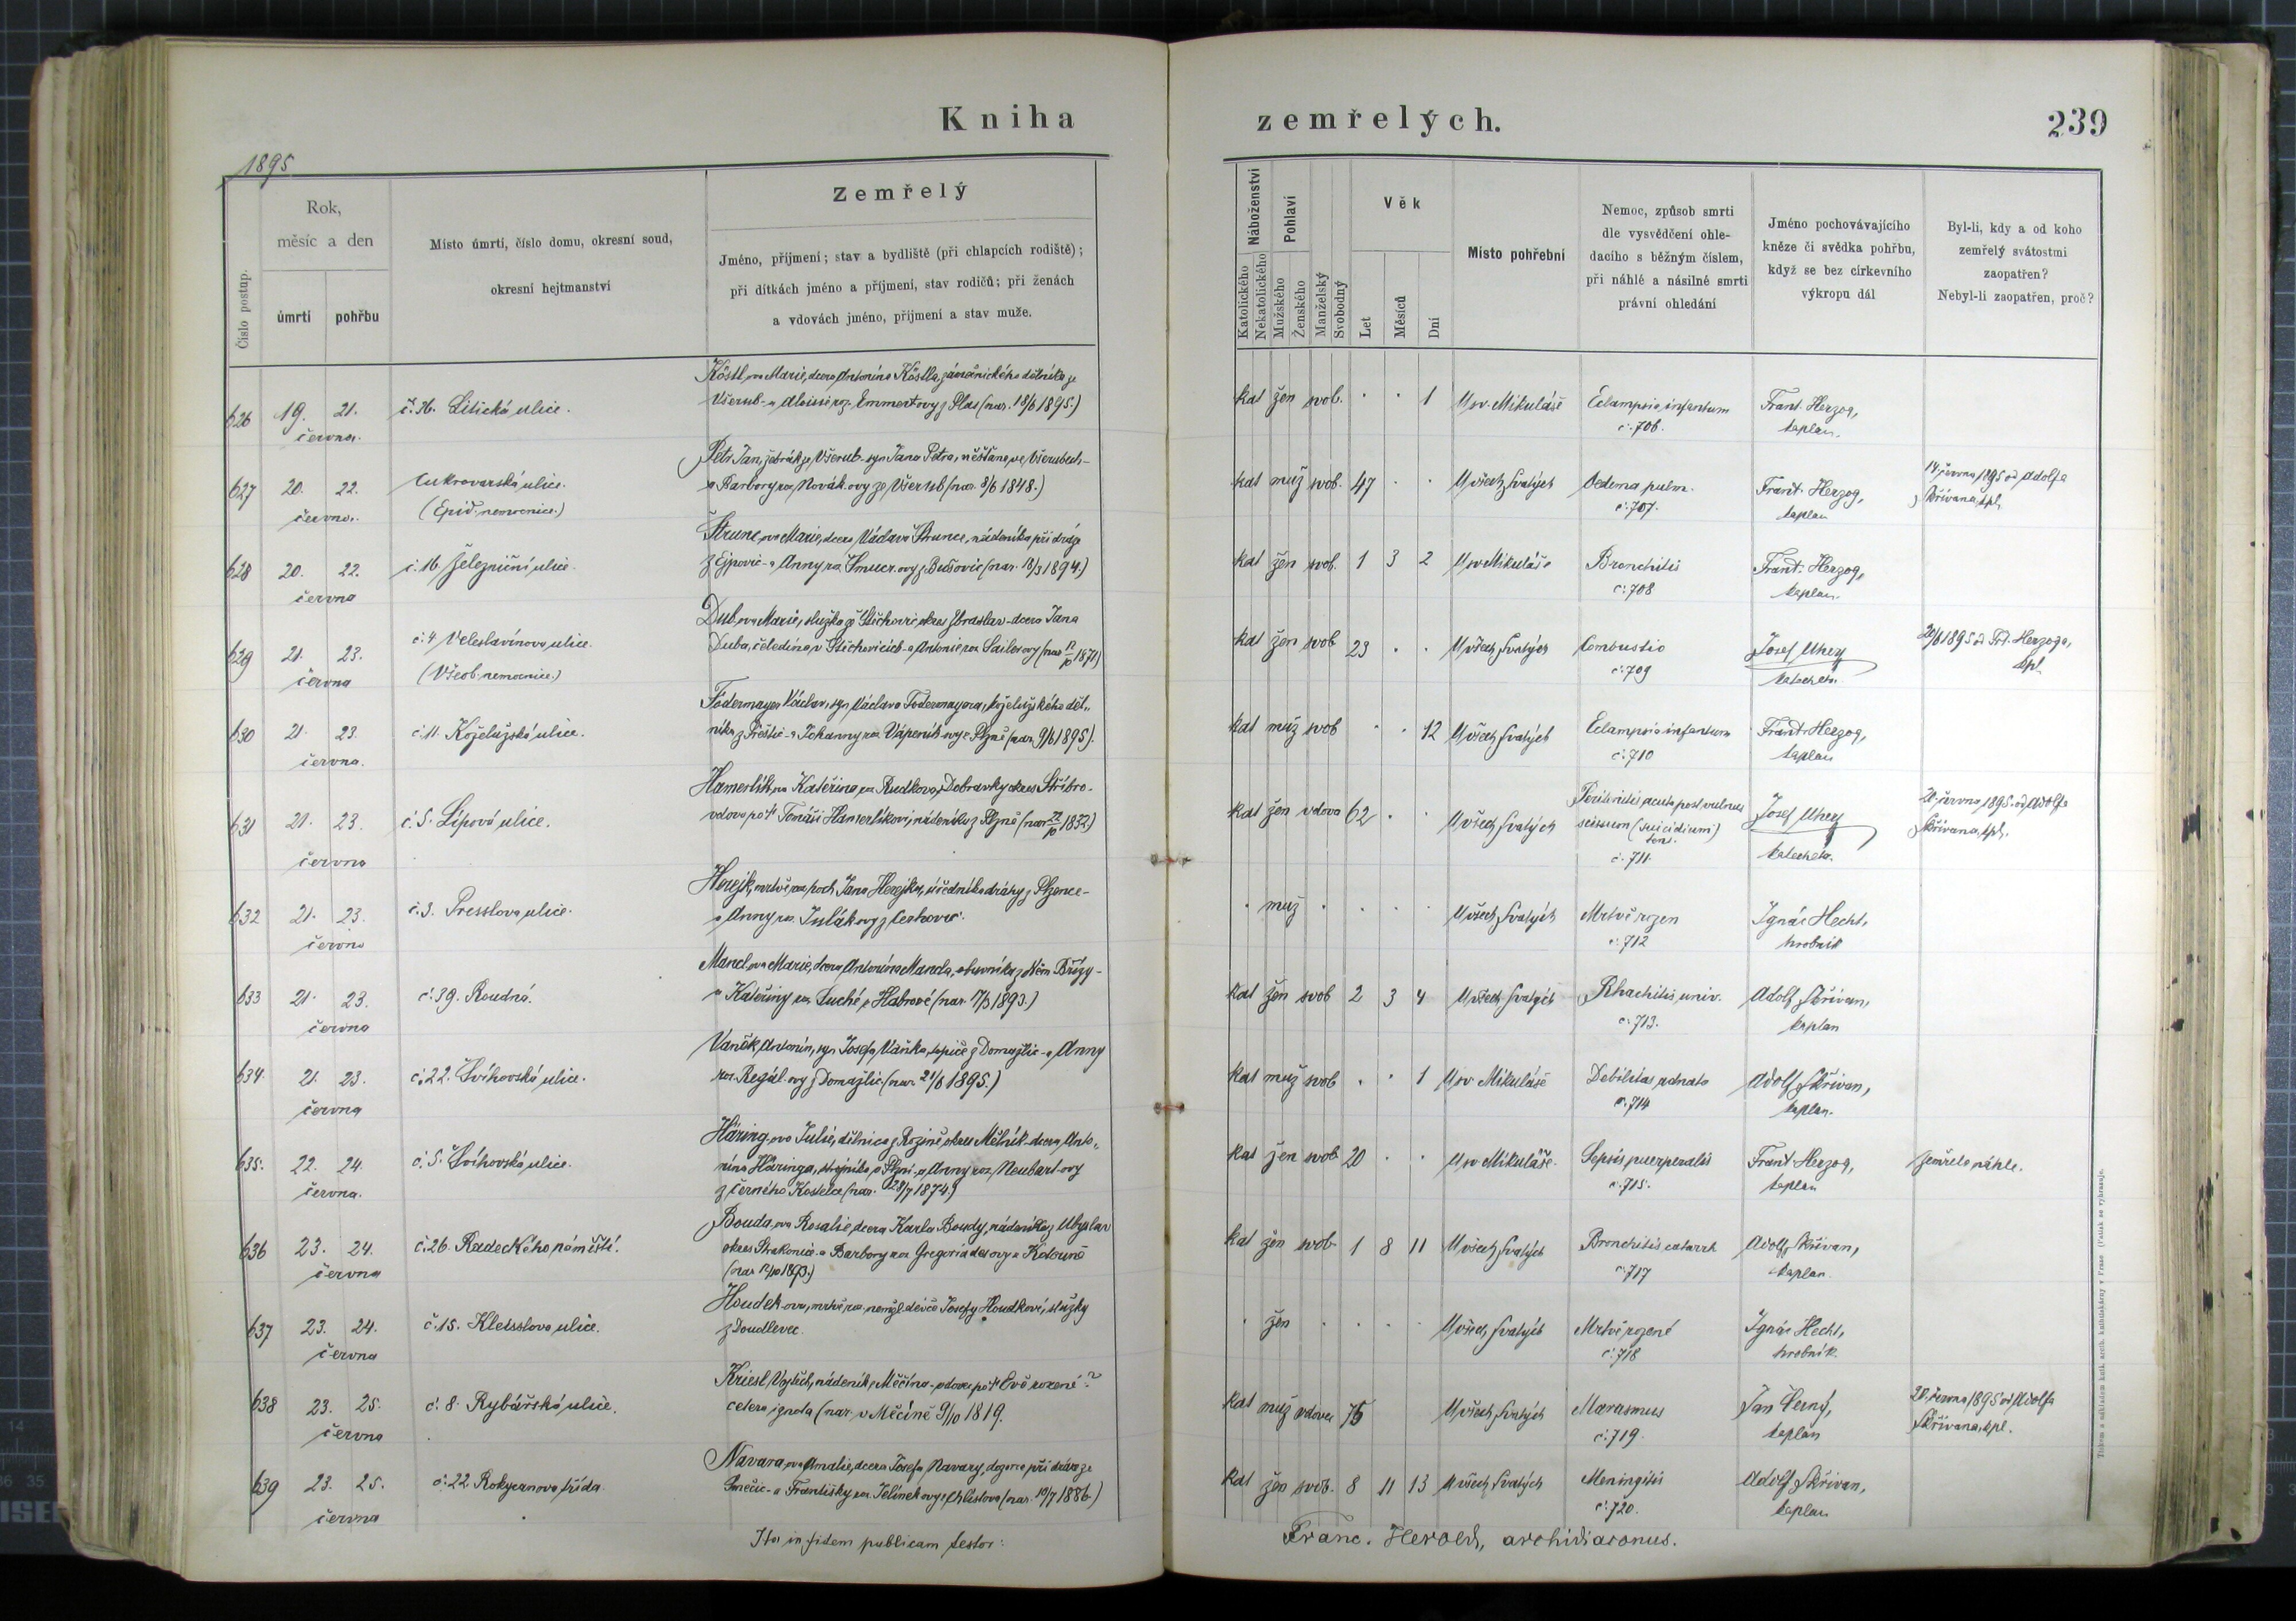 Kniha
zemřelých.
239
1895
Číslo postup.
Rok,
měsíc a den
úmrtí
pohřbu
Místo úmrtí, číslo domu, okresní soud,
okresní hejtmanství
Zemřelý
Jméno, příjmení; stav a bydliště (při chlapcích rodiště);
při dítkách jméno a příjmení, stav rodičů; při ženách
a vdovách jméno, příjmení a stav muže.
Náboženství
Katolického
Nekatolického
Pohlaví
Mužského
Ženského
Manželský
Svobodný
Věk
Let
Měsíců
Dní
Místo pohřební
Nemoc, způsob smrti
dle vysvědčení ohle-
dacího s běžným číslem,
při náhlé a násilné smrti
právní ohledání
Jméno pochovávajícího
kněze či svědka pohřbu,
když se bez církevního
výkropu dál
Byl-li, kdy a od koho
zemřelý svátostmi
zaopatřen?
Nebyl-li zaopatřen, proč?
626 19. 21. června. č. 36. Litická ulice.
Köstl ova Marie, dcera Antonína Köstla, zámečnického dělníka ze
Všerub - a Aloisie roz. Emmertovy z Plas (nar. 18/6 1895.)
kat žen svob. . . 1 U sv. Mikuláše Eclampsia infantum
č. 706. Frant. Herzog,
kaplan.
627 20. 22. června. Cukrovarská ulice.
(Epid. nemocnice.)
Petr Jan, žebrák ze Všerub - syn Jana Petra, měšťana ve Všerubech -
a Barbory roz. Novák.ovy ze Všerub (nar. 8/6 1848.)
kat muž svob. 47 . . U všech Svatých Oedema pulm.
č. 707. Frant. Herzog,
kaplan
14. června 1895 od Adolfa
Skřivana, kpl.
628 20. 22. června č. 16. Železniční ulice.
Štrunc ova Marie, dcera Václava Štrunce, nádeníka při dráze
z Ejpovic - a Anny roz. (nar. 18/3 1894.)
kat žen svob. 1 3 2 U sv. Mikuláše Bronchitis
č. 708 Frant. Herzog,
kaplan.
629 21. 23. června č. 4 Veleslavínova ulice.
(Všeob. nemocnice.)
Dub.ova Marie, služka ze Štěchovic, okres Zbraslav - dcera Jana
Duba, čeledína v Štěchovicích - a Antonie roz. Sailerovy (nar. 1871)
kat žen svob 23 . . U všech Svatých Combustio
č. 709 Josef Uhey
katecheta.
20/6 1895 od Frt. Herzoga,
kpl.
630 21. 23. června. č. 11. Koželužská ulice.
Födermayer Václav, syn Václava Födermayera, koželužského děl„
níka z Přeštic - a Johanny roz. Vápeník.ovy z Plzně (nar. 9/6 1895).
kat muž svob . . 12 U všech Svatých Eclampsia infantum
č. 710 Frant. Herzog,
kaplan
631 21. 23. června č. 5. Lipová ulice.
Hamerlík.ova Kateřina, roz. Rudkova z Dobravky okres Stříbro -
vdova po † Tomáši Hamerlíkovi, nádeníku z Plzně (nar. 1832)
kat žen vdova 62 . . U všech Svatých Peritonitis acuta post vulnus
scissum (suicidium)
č. 711. Josef Uhey
katecheta.
20. června 1895. od Adolfa
Skřivana, kpl.
632 21. 23. června č. 3. Presslova ulice.
Herejk, mrtvě roz. hoch Jana Herejka, úředníka dráhy z Plzence -
a Anny roz.
. muž . . . . U všech Svatých Mrtvě rozen
č. 712 Ignác Hecht,
hrobník
633 21. 23. června č. 39. Roudná.
Mandl.ova Marie, dcera Antonína Mandla, obuvníka z Něm. Břízy -
a Kateřiny roz. Suché z Habrové (nar. 17/3 1893.)
kat žen svob 2 3 4 U všech Svatých Rhachitis univ.
č. 713. Adolf Skřivan,
kaplan
634 21. 23. června č. 22. Švihovská ulice.
Vaněk Antonín, syn Josefa Vaňka, topiče z Domažlic - a Anny
roz. Regál.ovy z Domažlic (nar. 21/6 1895.)
kat muž svob . . 1 U sv Mikuláše Debilitas adnata
č. 714 Adolf Skřivan,
kaplan.
635. 22. 24. června. č. 5. Švihovská ulice.
Häring.ova Julie, dělnice z okres Mělník - dcera Anto„
nína Häringa, strojníka v Plzni - a Anny roz. Neubertovy
z Černého Kostelce (nar. 28/7 1874.)
kat žen svob 20 . . U sv Mikuláše. Sepsis puerperalis
č. 715. Frant Herzog,
kaplan
Zemřela náhle.
636 23. 24. června č. 26. Radeckého náměstí.
Bouda.ova Rosalie, dcera Karla Boudy, nádeníka z
okres Strakonic - a Barbory roz. Gregoriadesovy z
(nar. 12/10 1893.)
kat žen svob. 1 8 11 U všech Svatých Bronchitis catarrh
č. 717 Adolf Skřivan,
kaplan.
637 23. 24. června č. 15. Kleisslova ulice.
Houdek.ova, mrtvě roz. nemanž. děvče Josefy Houdkové, služky
z Doudlevec.
. žen . . . . U všech Svatých Mrtvě rozené
č. 718 Ignác Hecht,
hrobník.
638 23. 25. června č. 8. Rybářská ulice.
Kriesl Vojtěch, nádeník z Měčína - vdovec po † Evě rozené ?
cetera ignota (nar. v Měčíně 9/10 1819.
kat muž vdovec 75 U všech Svatých Marasmus
č. 719. Jan Černý,
kaplan
20. června 1895 od Adolfa
Skřivana, kpl.
639 23. 25. června č. 22. Rokycanova třída.
Navara.ova Amalie, dcera Josefa Navary, dozorce při dráze ze
a Františky roz. Jelínek.ovy z Chlistova (nar. 10/7 1886.)
kat žen svob. 8 11 13 U všech Svatých Meningitis
č. 720. Adolf Skřivan,
kaplan
Ita in fidem publicam testor:
Franc. Herold, archidiaconus.